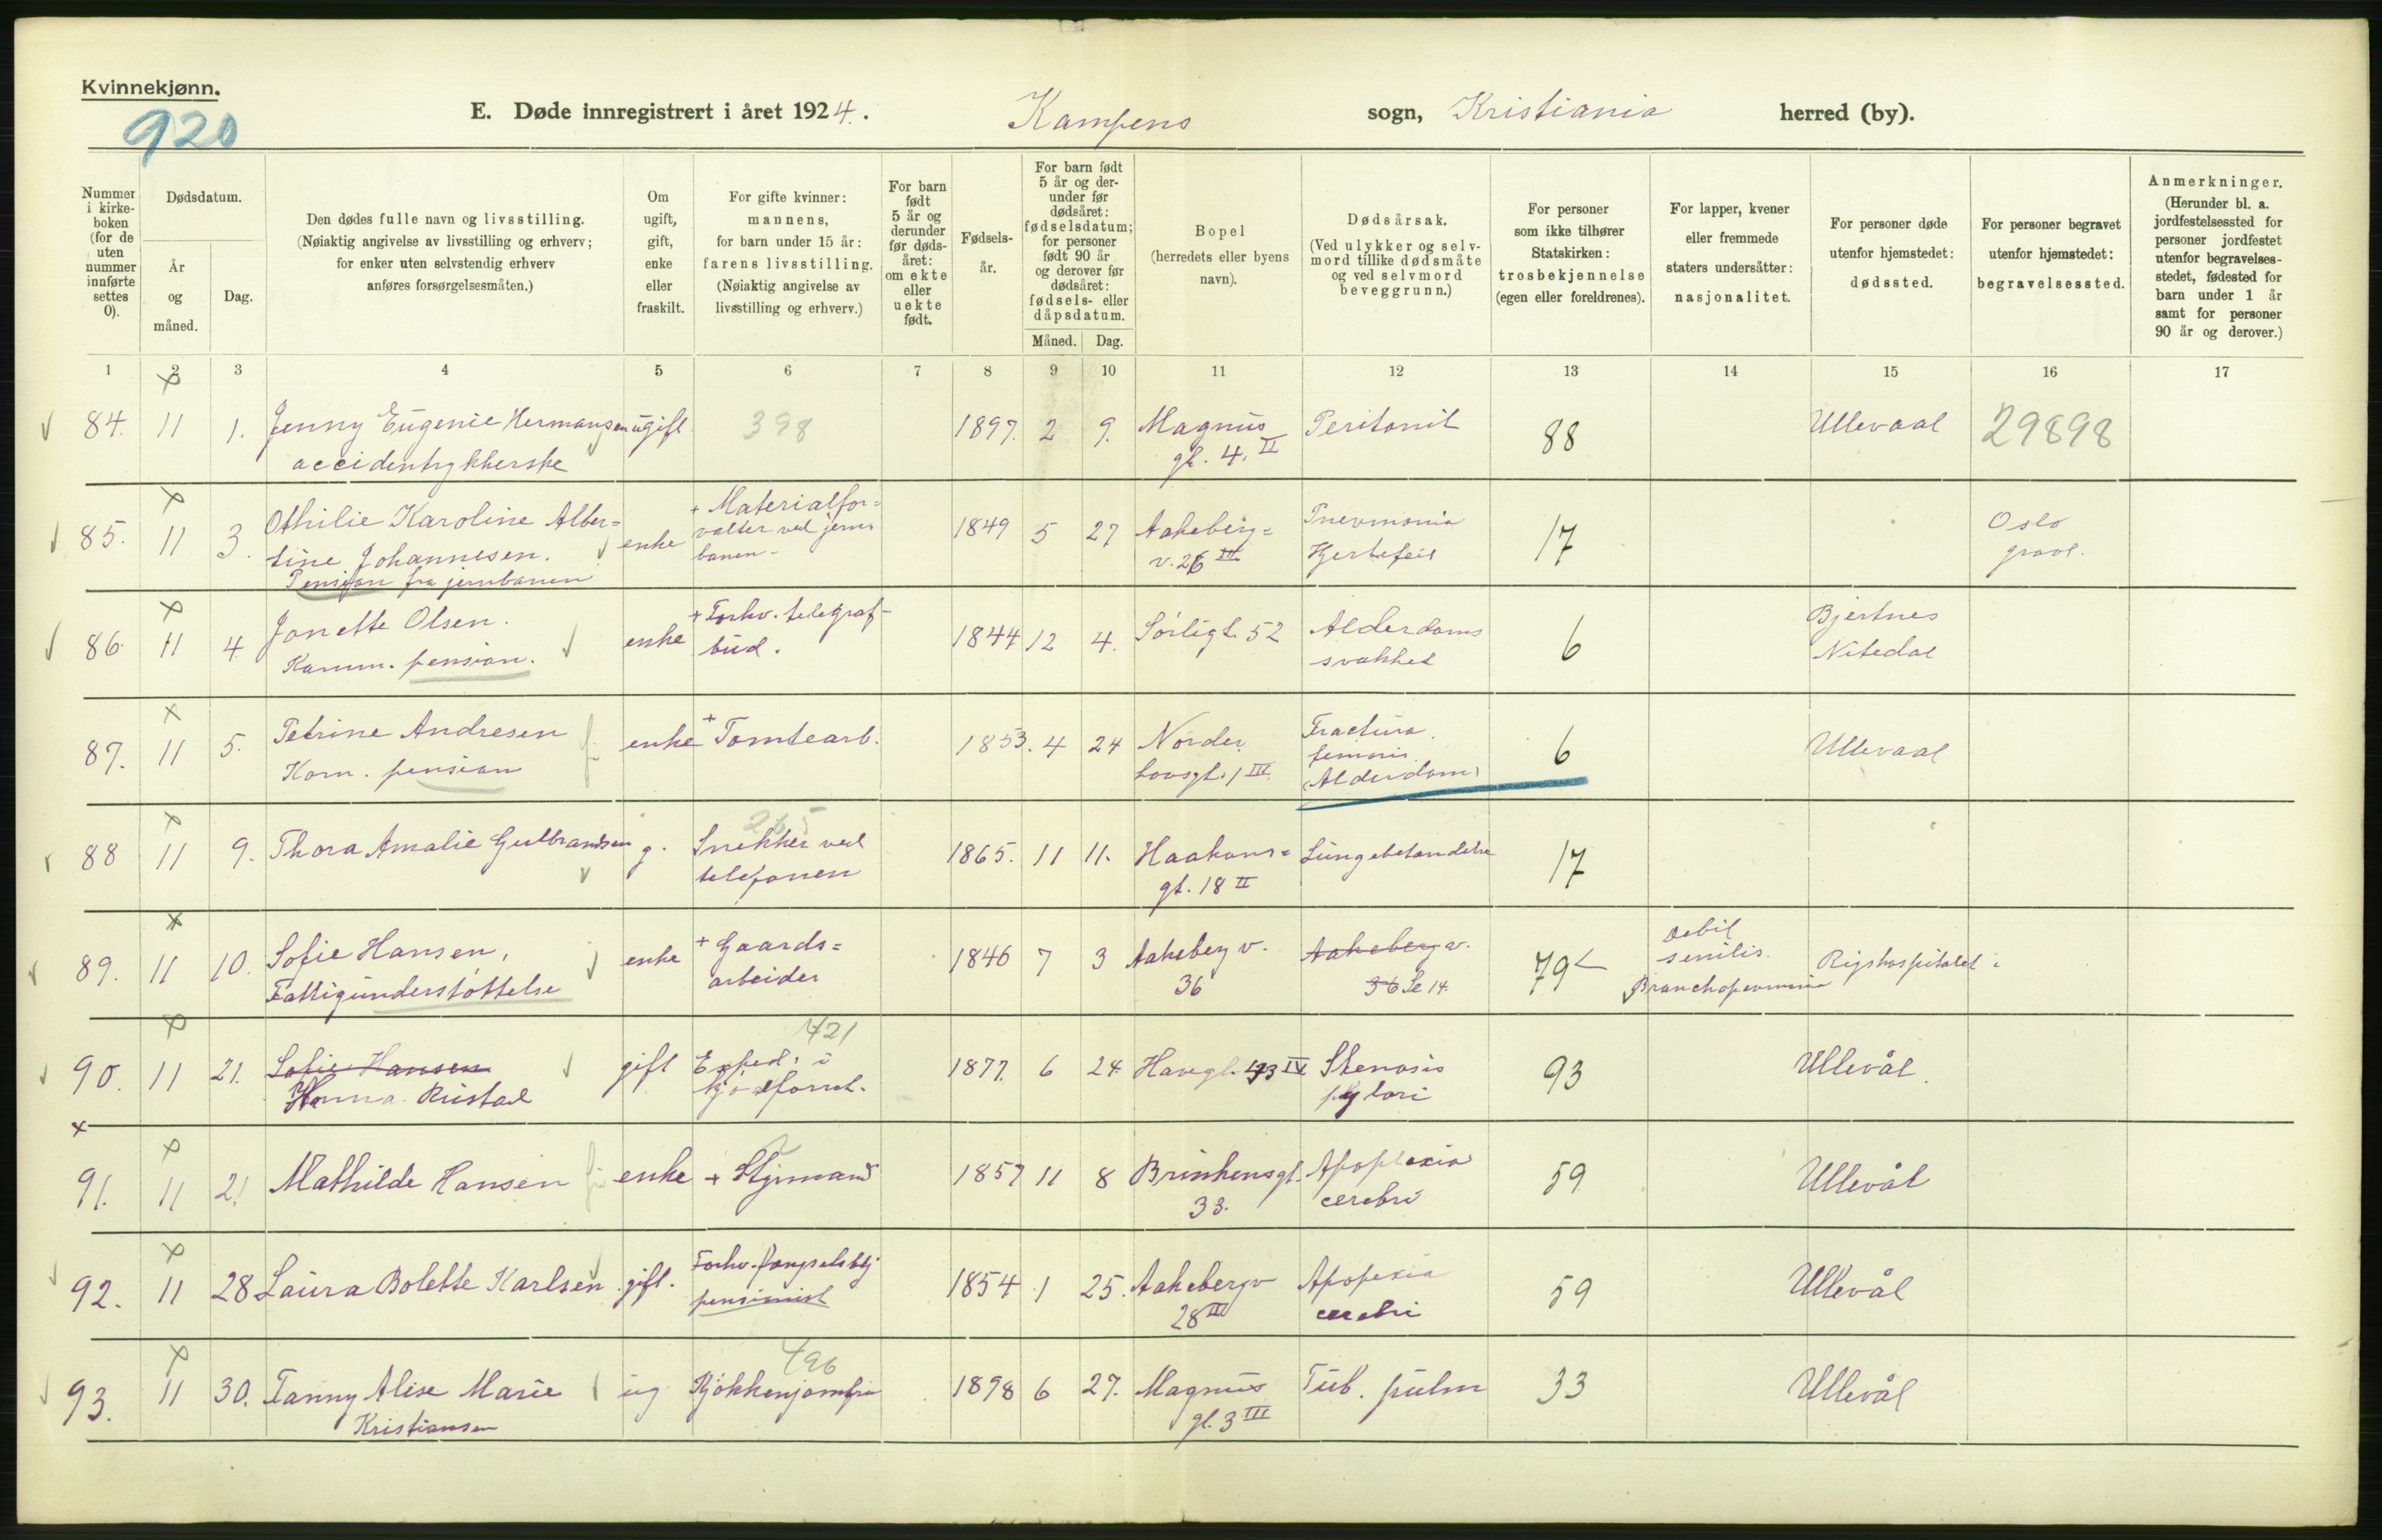 Kvinnekjønn.
920
E. Døde innregistrert i året 1924.. Kampens sogn, Kristiania herred (by).
Nummer i kirke-boken (for de uten nummer innførte settes 0).
Dødsdatum.
År og måned.
Dag.
Den dødes fulle navn og livsstilling.
(Nøiaktig angivelse av livsstilling og erhverv;
for enker uten selvstendig erhverv
anføres forsørgelsesmåten.)
Om ugift, gift, enke eller fraskilt.
For gifte kvinner:
mannens,
for barn under 15 år:
farens livsstilling.
(Nøiaktig angivelse av
livsstilling og erhverv.)
For barn født 5 år og derunder før døds-året: om ekte eller uekte født.
Fødsels-år.
For barn født 5 år og der-under før dødsåret: fødselsdatum; for personer født 90 år og derover før dødsåret: fødsels- eller dåpsdatum.
Måned. Dag.
Bopel
(herredets eller byens
navn).
Dødsårsak.
(Ved ulykker og selv-
mord tillike dødsmåte
og ved selvmord
beveggrunn.)
For personer
som ikke tilhører
Statskirken:
trosbekjennelse
(egen eller foreldrenes).
For lapper, kvener
eller fremmede
staters undersåtter:
nasjonalitet.
For personer døde
utenfor hjemstedet:
dødssted.
For personer begravet
utenfor hjemstedet:
begravelsessted.
Anmerkninger.
(Herunder bl. a.
jordfestelsessted for
personer jordfestet
utenfor begravelses-
stedet, fødested for
barn under 1 år
samt for personer
90 år og derover.)
1 2 3 4 5 6 7 8 9 10 11 12 13 14 15 16 17
84. 11 1. Jenny Eugenie Hermansen ugift 398 1897. 2 9. Magnus Peritonit 88 Ullevaal 29898
accidentrykkerske gt. 4. II
85. 11 3. Othilie Karoline Alber= enke + Materialfor= 1849 5 27 Aakeberg= Pnevmonia 17 Oslo
tine Johannesen. valter ved jern v. 26 III Hjertefeil gravl.
Pension fra jernbanen banen-
86. 11 4 Janette Olsen. enke + Forhv. telegraf- 1844 12 4. Sørligt. 52 Alderdoms 6 Bjertnes
Komm. pension. bud. svakhet Nitedal
87. 11 5. Petrine Andresen enke + Tomtearb. 1853. 4 24 Norder Fractura 6 Ullevaal
Kom. pension hovsgt. 1 III femoris
(Alderdom)
88 11 9. Thora Amalie Gulbrandsen g. 265 Snekker ved 1865. 11 11. Haakons= Lungebetændelse 17
telefonen gt. 18 II
89. 11 10. Sofie Hansen, enke + Gaards= 1846 7 3 Aakeberg v. Aakeberg v. 79 Debil Rigshospitalet
Fattigunderstøttelse arbeider 36 36 Se 14. senilis.
Bronchopevmonia
90. 11 21. Sofie Hansen gift 421 Exped. i 1877. 6 24 Havegt. IV Stenosis 93 Ullevål
Hanna Rustad kjødforret. pylori
91. 11 21 Mathilde Hansen enke + Styrmand 1857 11 8 Brinkensgt. Apoplexia 59 Ullevål
33. cerebri
92. 11 28 Laura Bolette Karlsen. gift. Forhv. fængselsbtj 1854 1 25. Aakebergv Apopexia 59 Ullevål
pensionist 28 III cerebri
93. 11 30. Fanny Alise Marie ug 496 Kjøkkenjomfru 1898 6 27. Magnus Tub. pulm 33 Ullevål
Kristiansen gt. 3 III